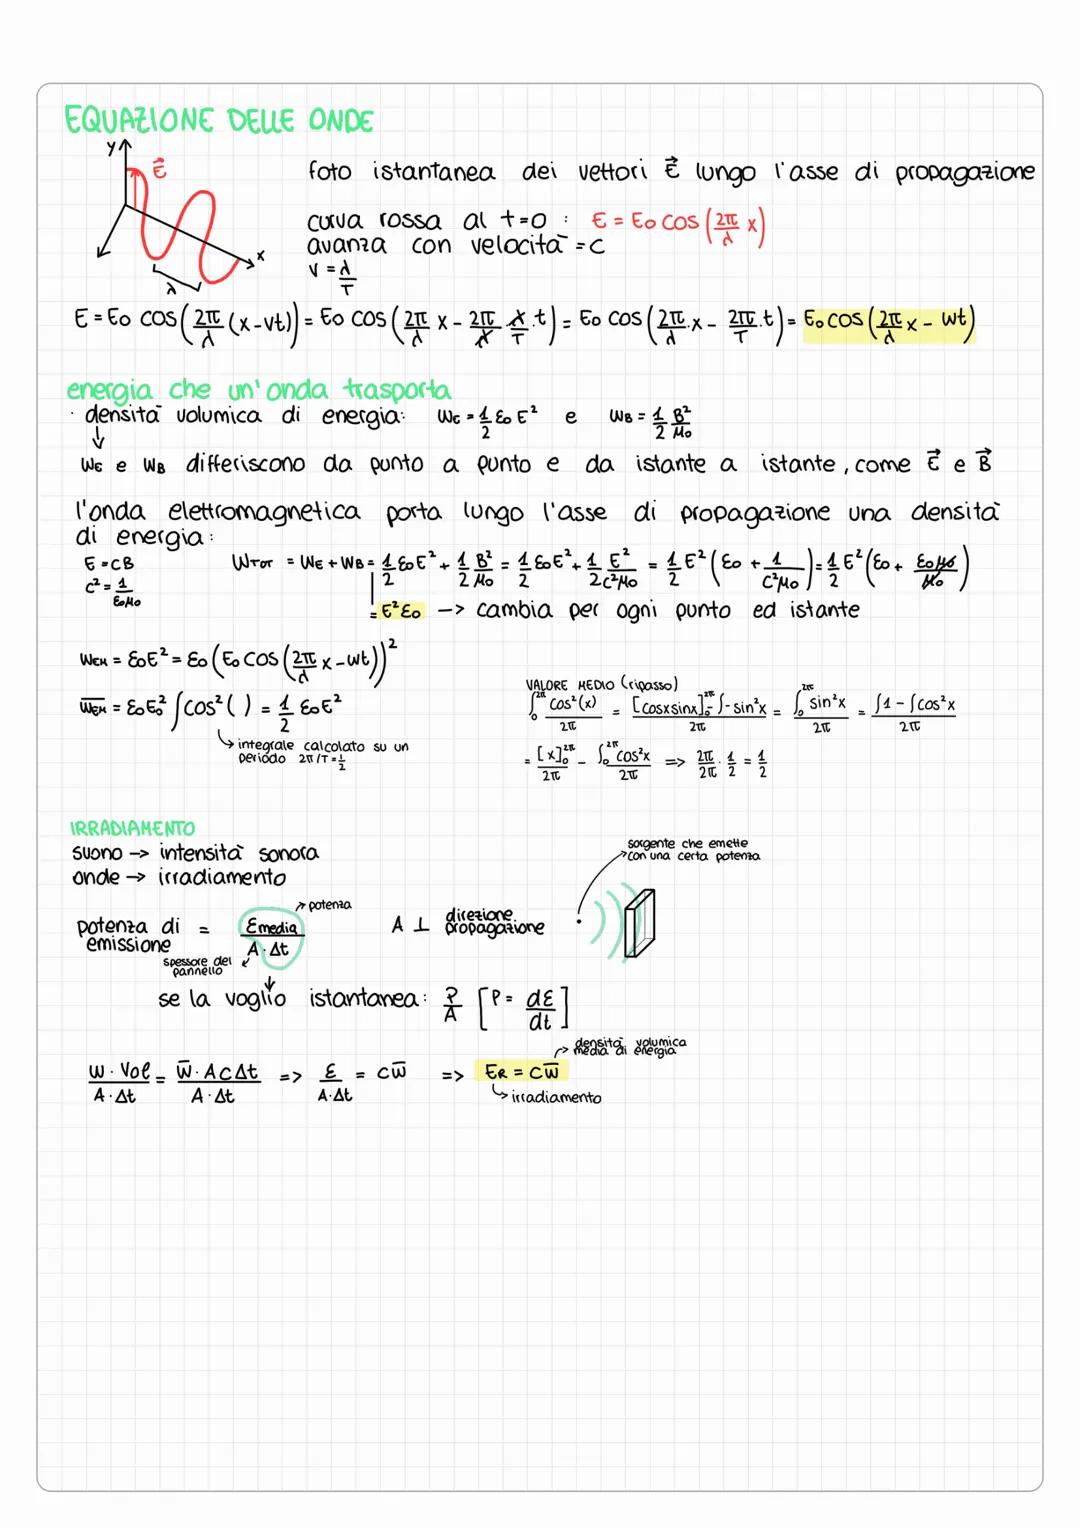 EQUAZIONE DELLE ONDE
y
E⃗
x
λ
foto istantanea dei vettori E⃗ lungo l'asse di propagazione
curva rossa al t=0 : E = E₀ cos (2π/λ x)
avanza con velocità = c
v = λ/T
E = E₀ cos (2π/λ (x-vt)) = E₀ cos (2π/λ x - 2π/λ · λ/T · t) = E₀ cos (2π/λ · x - 2π/T · t) = E₀ cos (2π/λ x - wt)
energia che un'onda trasporta
· densità volumica di energia: WE = 1/2 ε₀ E² e WB = 1/2 B²/μ₀
↓
WE e WB differiscono da punto a punto e da istante a istante, come E⃗ e B⃗
l'onda elettromagnetica porta lungo l'asse di propagazione una densità
di energia:
E = cB
c² = 1/ε₀μ₀
WTOT = WE + WB = 1/2 ε₀E² + 1/2 B²/μ₀ = 1/2 ε₀E² + 1/2 E²/c²μ₀ = 1/2 E² (ε₀ + 1/c²μ₀) = 1/2 E² (ε₀ + ε₀μ₀/μ₀)
= E²ε₀ -> cambia per ogni punto ed istante
WEM = ε₀E² = ε₀ (E₀ cos (2π/λ x - wt))²
W̅E̅M̅ = ε₀E₀² ∫cos² ( ) = 1/2 ε₀E²
↳ integrale calcolato su un
periodo 2π/T = 1/2
VALORE MEDIO (ripasso)
∫₀²π cos²(x)/2π = [cosxsinx]₀²π ∫-sin²x/2π = ∫₀²π sin²x/2π = ∫1 - ∫cos²x/2π
= [x]₀²π/2π - ∫₀²π cos²x/2π => 2π/2π · 1/2 = 1/2
IRRADIAMENTO
suono → intensità sonora
onde → irradiamento
sorgente che emette
con una certa potenza
potenza di emissione = Emedia/A·Δt
potenza
A ⊥ direzione propagazione
spessore del
pannello
se la voglio istantanea: P/A [P = dε/dt]
densità volumica
media di energia
W·Vol/A·Δt = W̅·AcΔt/A·Δt => ε/A·Δt = cw̅ => ER = cw̅
↳ irradiamento